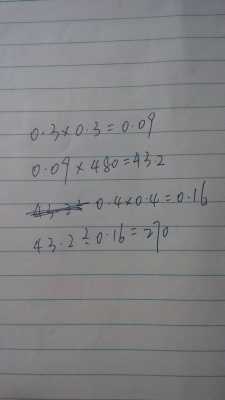 0.3×0.3=0.09
0.09×480=432
0.4×0.4=0.16
43.2÷0.16=270